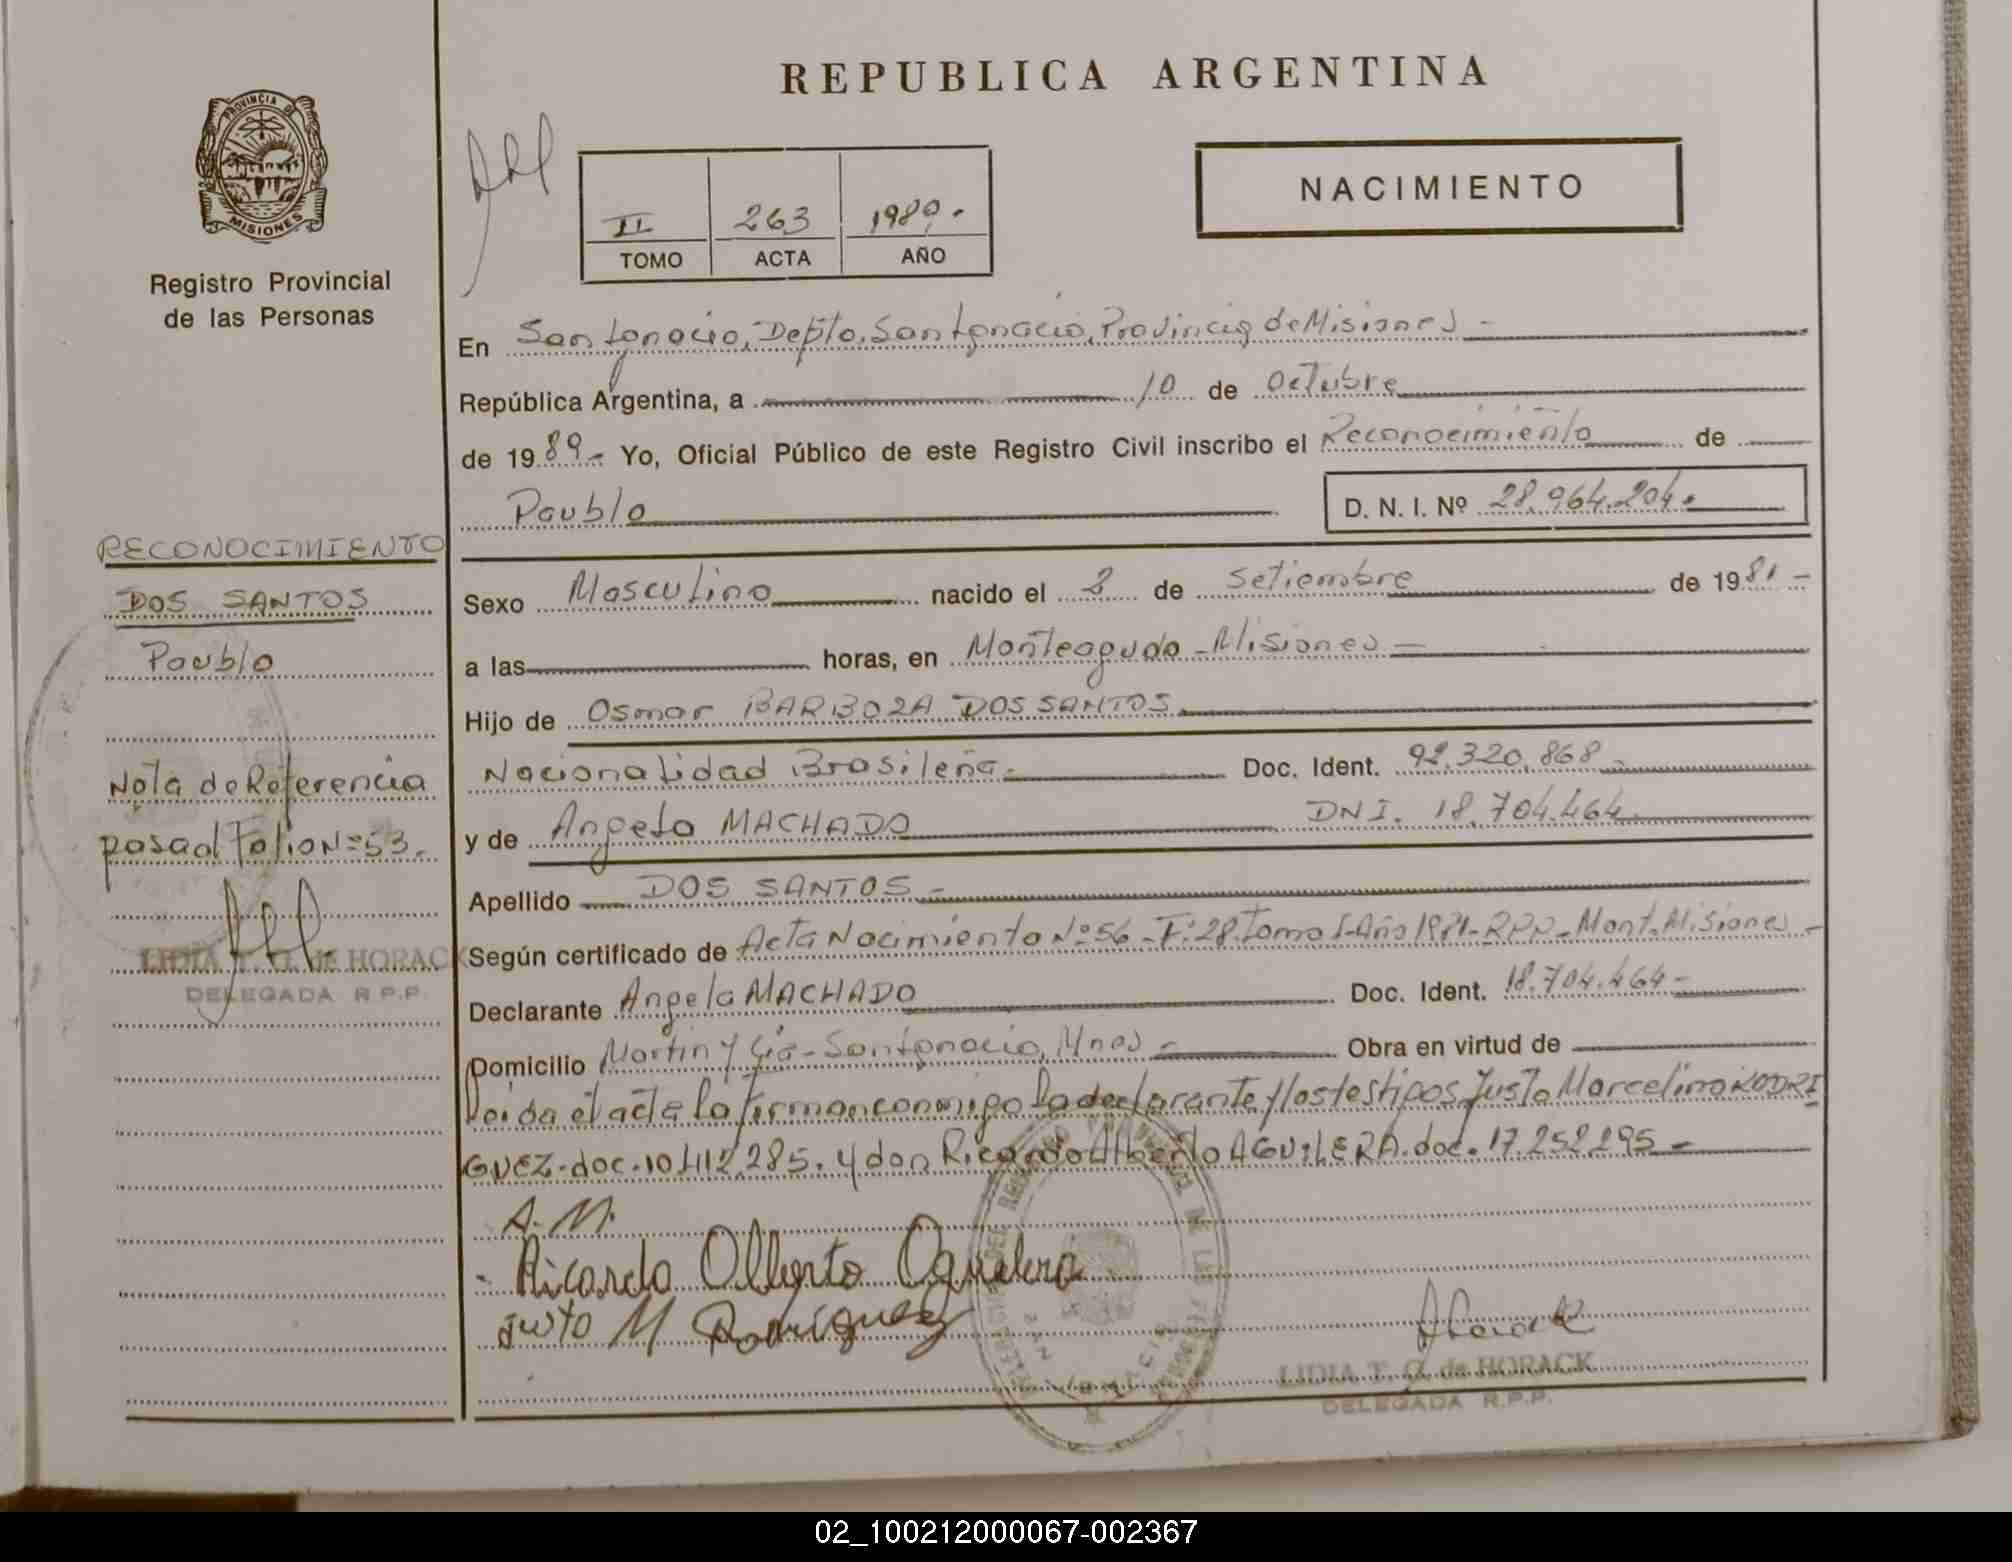 REPUBLICA ARGENTINA
PROVINCIA DE
MISIONES
Registro Provincial
de las Personas
II 263 1989.
TOMO ACTA AÑO
NACIMIENTO
En San Ignacio, Depto. San Ignacio, Provincia de Misiones -
República Argentina, a 10 de Octubre
de 1989- Yo, Oficial Público de este Registro Civil inscribo el Reconocimiento de
Paublo D. N. I. Nº 28.964.204.
RECONOCIMIENTO
DOS SANTOS
Paublo
Nota de Referencia
pasa al Folio N=53.
LIDIA T. G. de HORACK
DELEGADA R.P.P.
Sexo Masculino nacido el 2 de Setiembre de 1981-
a las horas, en Monteagudo - Misiones -
Hijo de Osmar BARBOZA DOS SANTOS.
Nacionalidad Brasileña- Doc. Ident. 92.320.868
y de Angela MACHADO DNI. 18.704.464
Apellido DOS SANTOS -
Según certificado de Acta Nacimiento Nº56 - Fº28. Tomo I-Año 1981-RPP- Mont. Misiones -
Declarante Angela MACHADO Doc. Ident. 18.704.464-
Domicilio Martin y Cía - San Ignacio, Mnes - Obra en virtud de
leida el acta la firman conmigo la declarante y los testigos Justo Marcelino RODRI
GUEZ-doc.10.412.285. y don Ricardo Alberto AGUILERA.doc. 17.252.295 -
A. M.
Ricardo Alberto Aguilera
Justo M Rodríguez
LIDIA T. G. de HORACK
DELEGADA R.P.P.
02_100212000067-002367